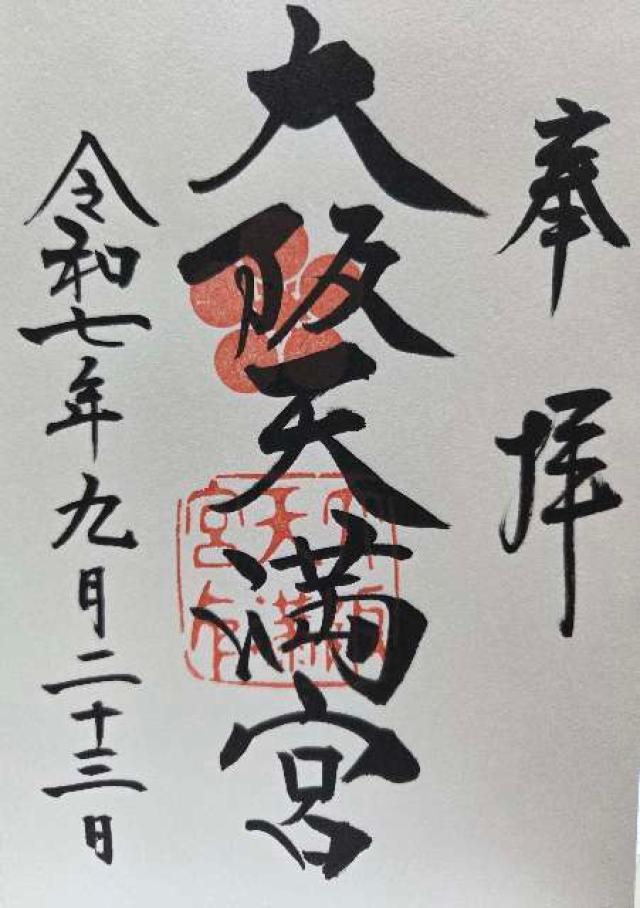 奉拝
大阪天満宮
令和七年九月二十三日